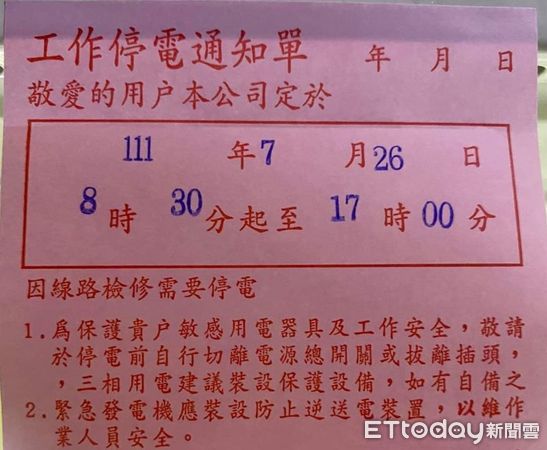 工作停電通知單 年 月 日
敬愛的用户本公司定於
111 年 7 月 26 日
8 時 30 分起至 17 時 00 分
因線路檢修需要停電
1. 為保護貴户敏感用電器具及工作安全，敬請
於停電前自行切離電源總開關或拔離插頭，
，三相用電建議裝設保護設備，如有自備之
2. 緊急發電機應裝設防止逆送電裝置，以維作
業人員安全。
ETtoday新聞雲